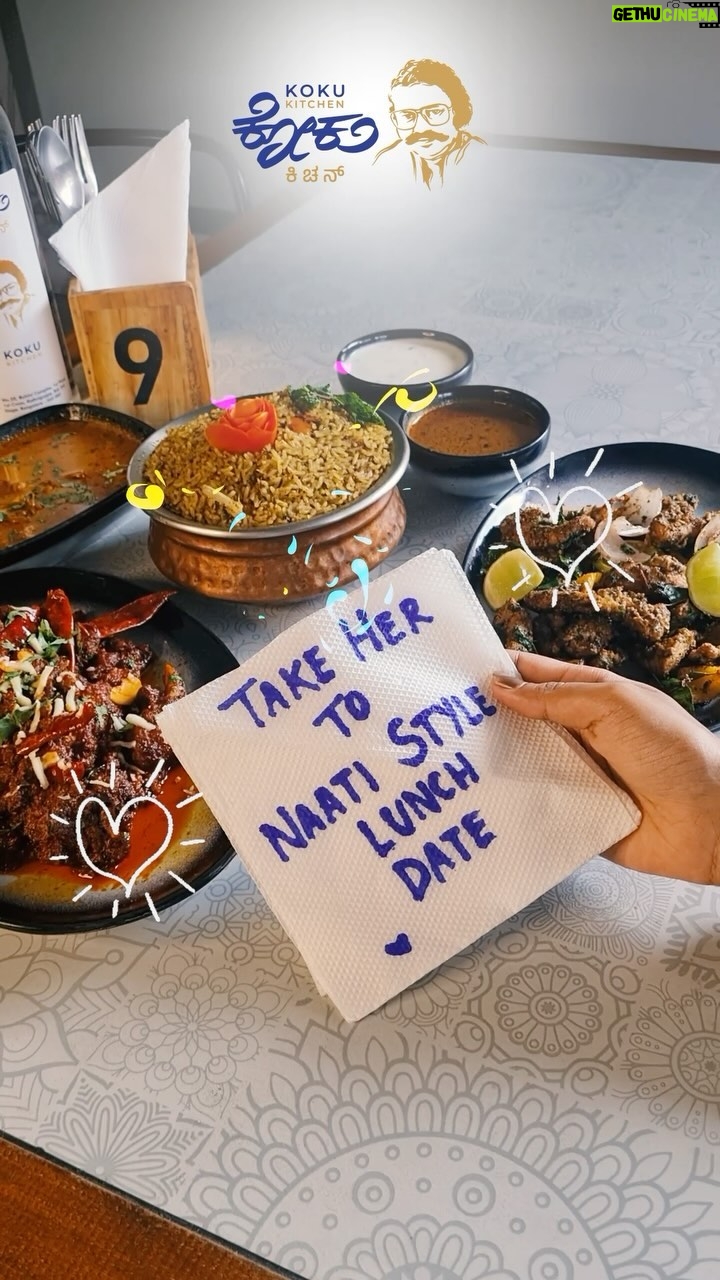 GETHU CINEMA
KOKU
KITCHEN
ಕೋಕು
ಕಿಚನ್
KOKU
KITCHEN
9
TAKE HER
TO
NAATI STYLE
LUNCH
DATE